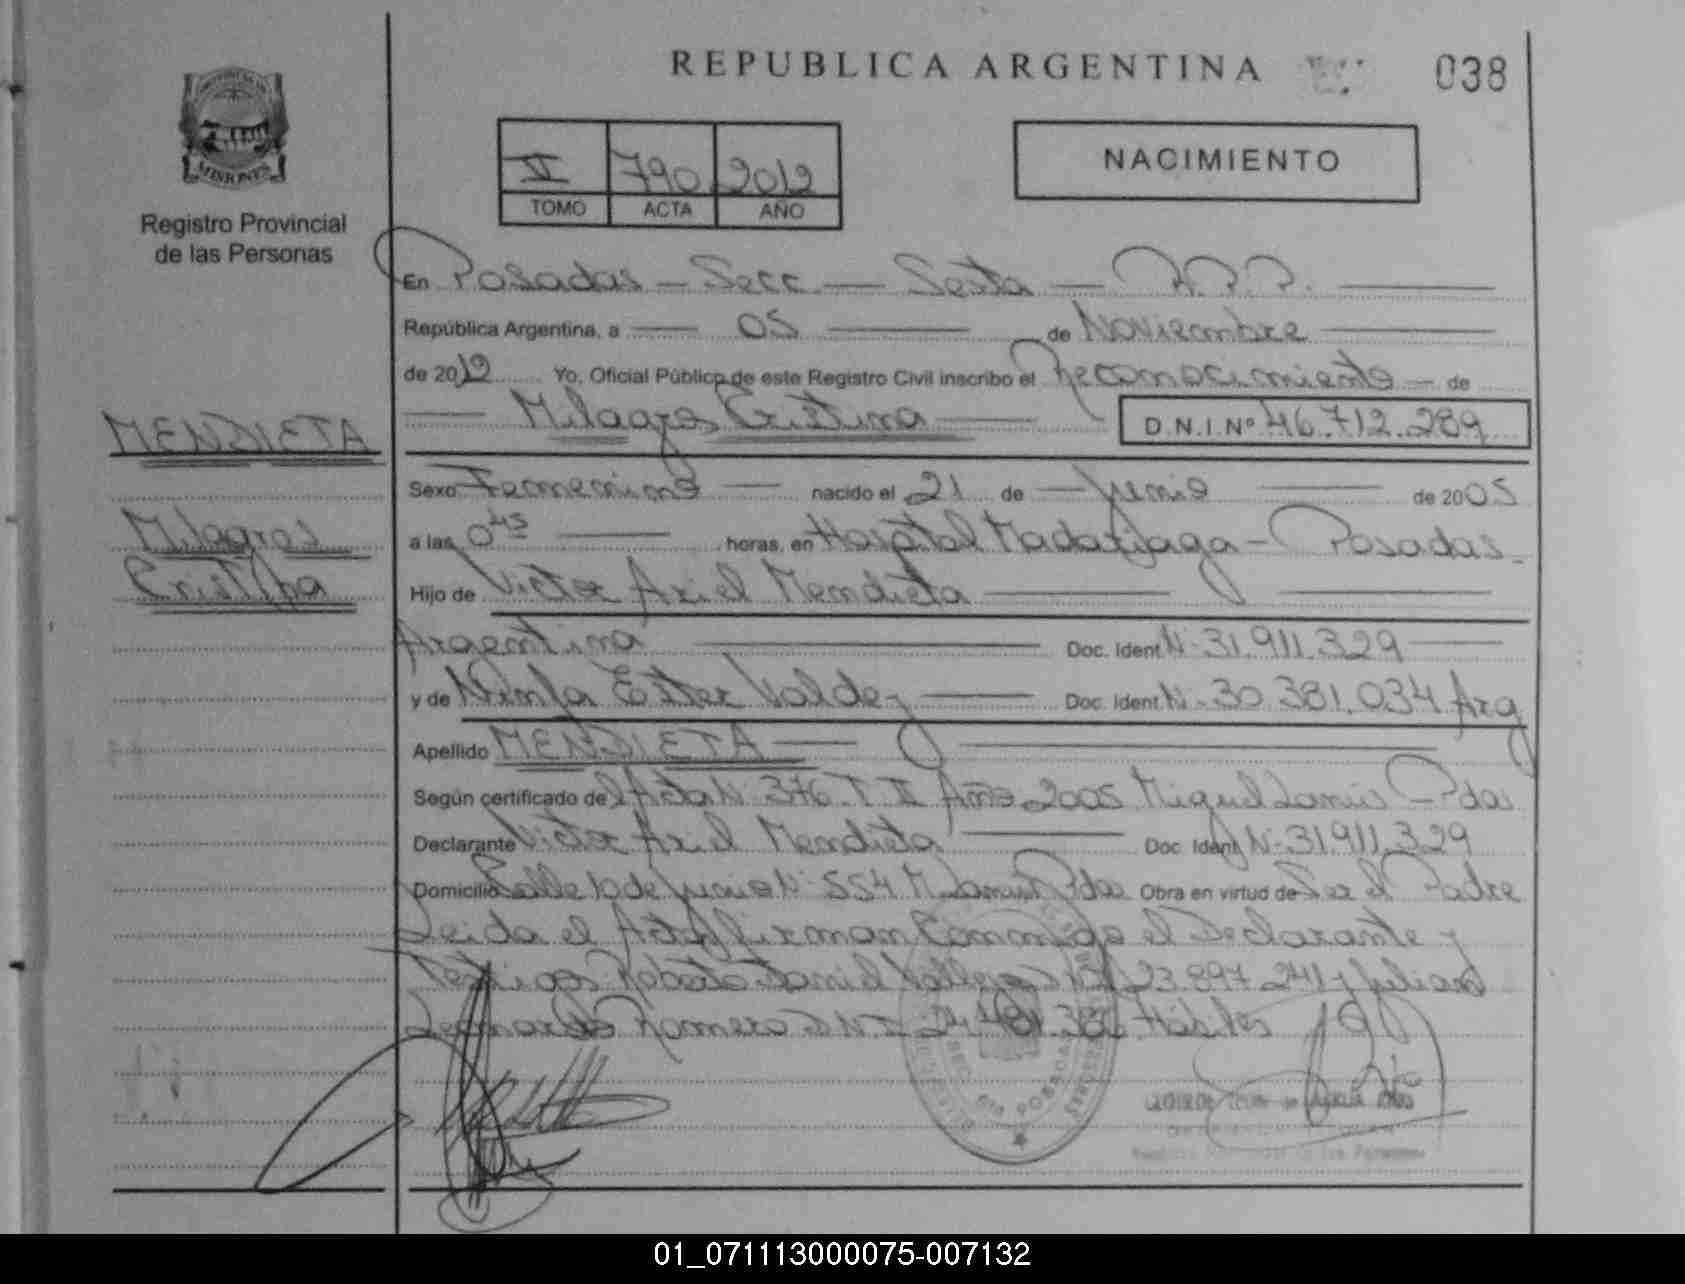 REPUBLICA ARGENTINA
038
MISIONES
Registro Provincial
de las Personas
VI 790 2012
TOMO ACTA AÑO
NACIMIENTO
En Posadas - Secc - Sexta - R.P.P.
República Argentina, a 05 de Noviembre
de 2012 Yo, Oficial Público de este Registro Civil inscribo el Reconocimiento de
Milagros Cristina D.N.I. Nº 46.712.289
MENDIETA
Milagros
Cristina
Sexo Femenino nacido el 21 de Junio de 2005
a las 0 45 horas, en Hospital Madariaga - Posadas
Hijo de Victor Ariel Mendieta
Argentina Doc. Ident Nº 31.911.329
y de Ninfa Ester Valdez Doc. Ident Nº 30.381.034 Arg
Apellido MENDIETA
Según certificado del Acta Nº 376 T II Año 2005 Miguel Lanus Pdas
Declarante Victor Ariel Mendieta Doc. Ident Nº 31911.329
Domicilio Calle 10 de Junio Nº 554 M Lanus Pdas Obra en virtud de Ser el Padre
Leida el Acta firman Conmigo el Declarante y
Testigos Roberto Daniel Vallejos 23.897.241 y Julian
Leonardo Romero DNI Habiles
SECC 6ta POSADAS
01_071113000075-007132